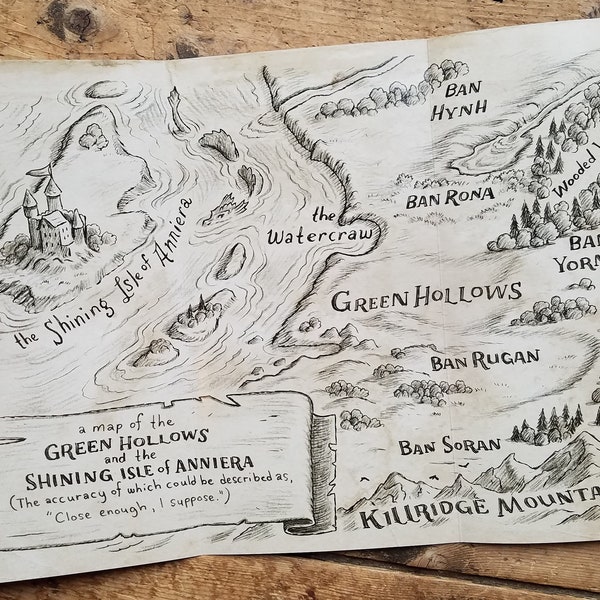 BAN
HYNH
BAN RONA
Wooded
the
Watercraw
the Shining Isle of Anniera
BAN
GREEN HOLLOWS
BAN RUGAN
a map of the
GREEN HOLLOWS
and the
SHINING ISLE of ANNIERA
(The accuracy of which could be described as,
"Close enough, I suppose.")
BAN SORAN
KILLRIDGE